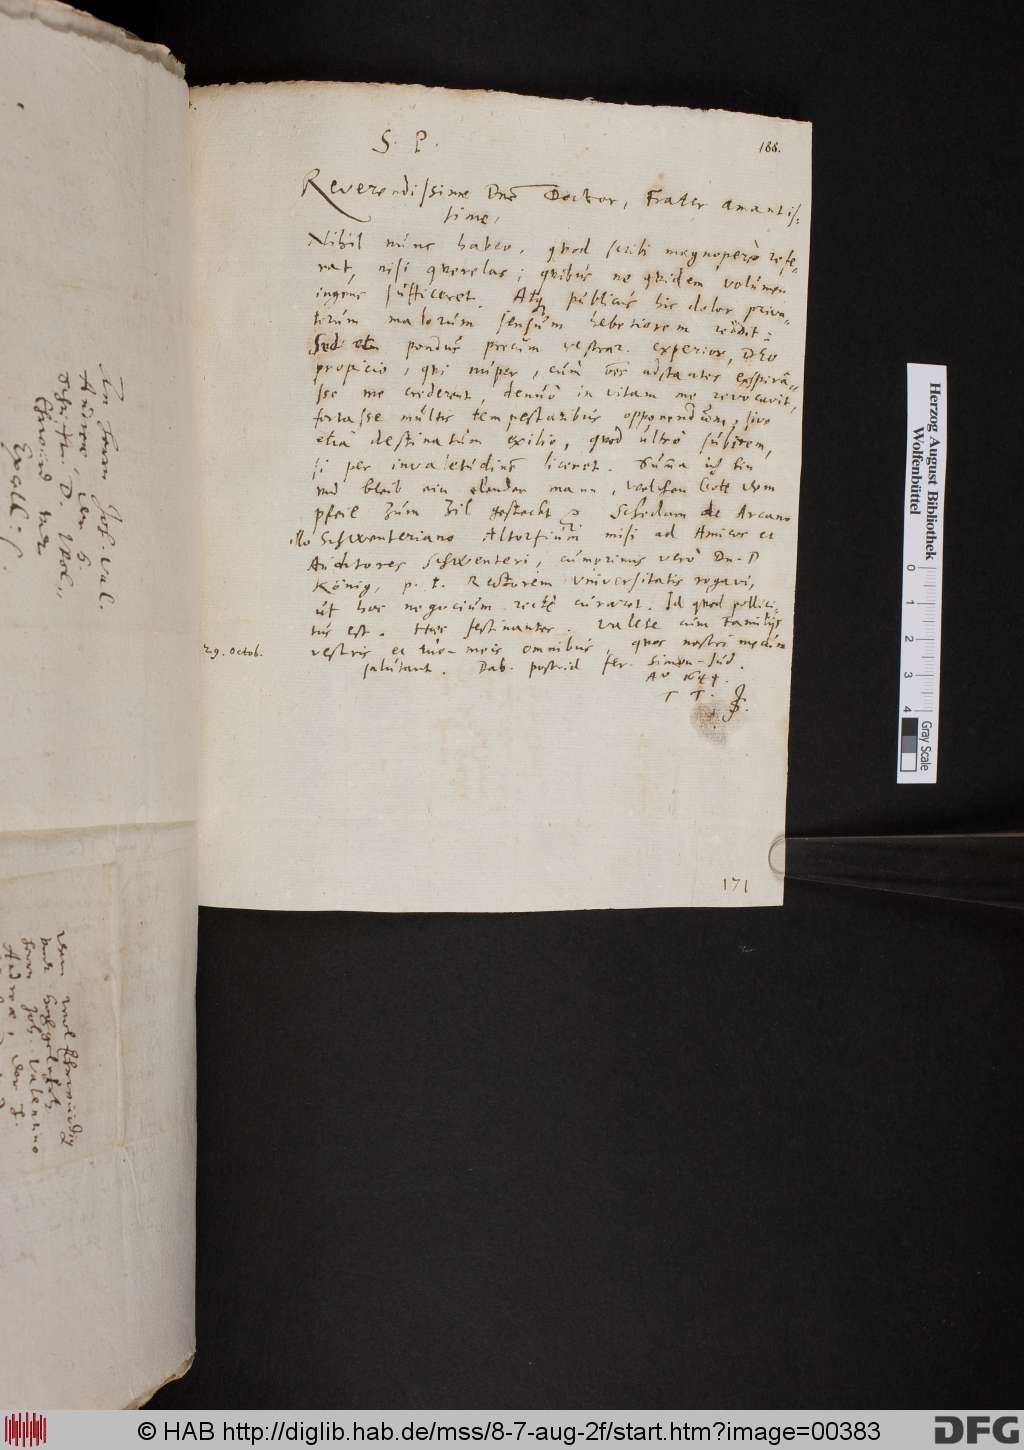 S. P.
188.
Reverendissime Dne Doctor, Frater amantis-
sime,
Nihil nunc habeo, quod scribi magnoperè refe-
rat, nisi querelas; quibus ne quidem volumen
ingens sufficeret. Atq publicus hic dolor priva-
torum malorum sensum hebetiorem reddit:
Sed etiam pondus precum vestrar. experior, DEO
propicio, qui nuper, cùm oēs adstantes expirâ-
sse me crederent, denuò in vitam me revocavit,
fortasse multis tempestatibus opponendum, sive
etiā destinatum exilio, quod ultrò subirem,
si per invaletudinē liceret. Summa ich bin
und bleib ein elender mann, welchen Gott dem
pfeil zum Zil gestecht. Schedam de Arcano
illo Schwenteriano Altorfium misi ad Amicos et
Auditores Schwenteri, cumprimis verò Dn. D
König, p. t. Rectorem Universitatis rogavi,
ut hoc negocium rectè curaret. Id quod pollici-
tus est. Haec festinanter. Valete cùm familijs
29. Octob.
vestris et meis omnibus, quos nostri mecùm
salutant. Dab. postrid fer. Simon-Jud.
Aō 1644.
T T.
171
An herrn Joh. Val.
Andreae, der H.
Schrifft. D.
Ehrwürd
Excell:
dem
herrn Joh. Valentino
Andreae, der H.
Herzog August Bibliothek
Wolfenbüttel
0 1 2 3 4
Gray Scale
© HAB http://diglib.hab.de/mss/8-7-aug-2f/start.htm?image=00383
DFG